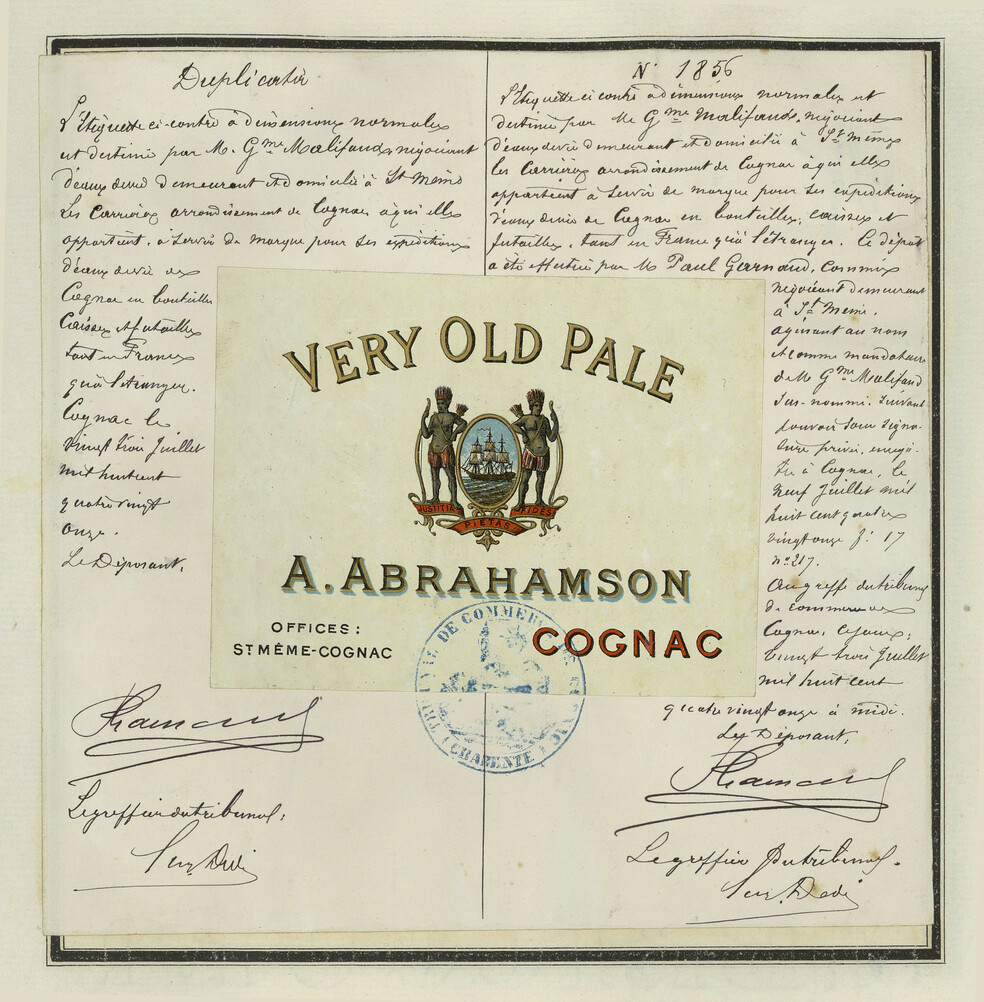 Duplicata
L'étiquette ci-contre à dimensions normales
est destinée par M. Gme Malifaud, négociant
d'eaux de vie demeurant et domicilié à St Meme
Les Carrières arrondissement de Cognac à qui elle
appartient, à servir de marque pour ses expéditions
d'eaux de vie de
Cognac en bouteilles
Caisses et futailles
tant en France
qu'à l'étranger.
Cognac le
vingt trois Juillet
mil huit cent
quatre vingt
onze.
Le Déposant,
Le greffier du tribunal:
N° 1856
L'étiquette ci contre à dimensions normales est
destinée par M. Gme Malifaud, négociant
d'eaux de vie demeurant et domicilié à St Même
les Carrières arrondissement de Cognac à qui elle
appartient à servir de marque pour ses expéditions
d'eaux de vie de Cognac en bouteilles, caisses et
futailles, tant en France qu'à l'étranger. Le dépôt
a été effectué par M. Paul Garnaud, commis
négociant demeurant
à St Meme.
agissant au nom
et comme mandataire
de M. Gme Malifaud
sus-nommé. Suivant
pouvoir sous signa-
ture privée, enregis-
tré à Cognac, le
neuf Juillet mil
huit cent quatre
vingt onze f: 17
n° 217.
Au greffe du tribunal
de commerce de
Cognac, ce jour,
vingt trois Juillet
mil huit cent
quatre vingt onze à midi.
Le Déposant,
Le greffier du tribunal.
VERY OLD PALE
JUSTITIA PIETAS FIDES
A. ABRAHAMSON
OFFICES:
ST MÊME-COGNAC
COGNAC
TRIBUNAL DE COMMERCE DE COGNAC
(CHARENTE)